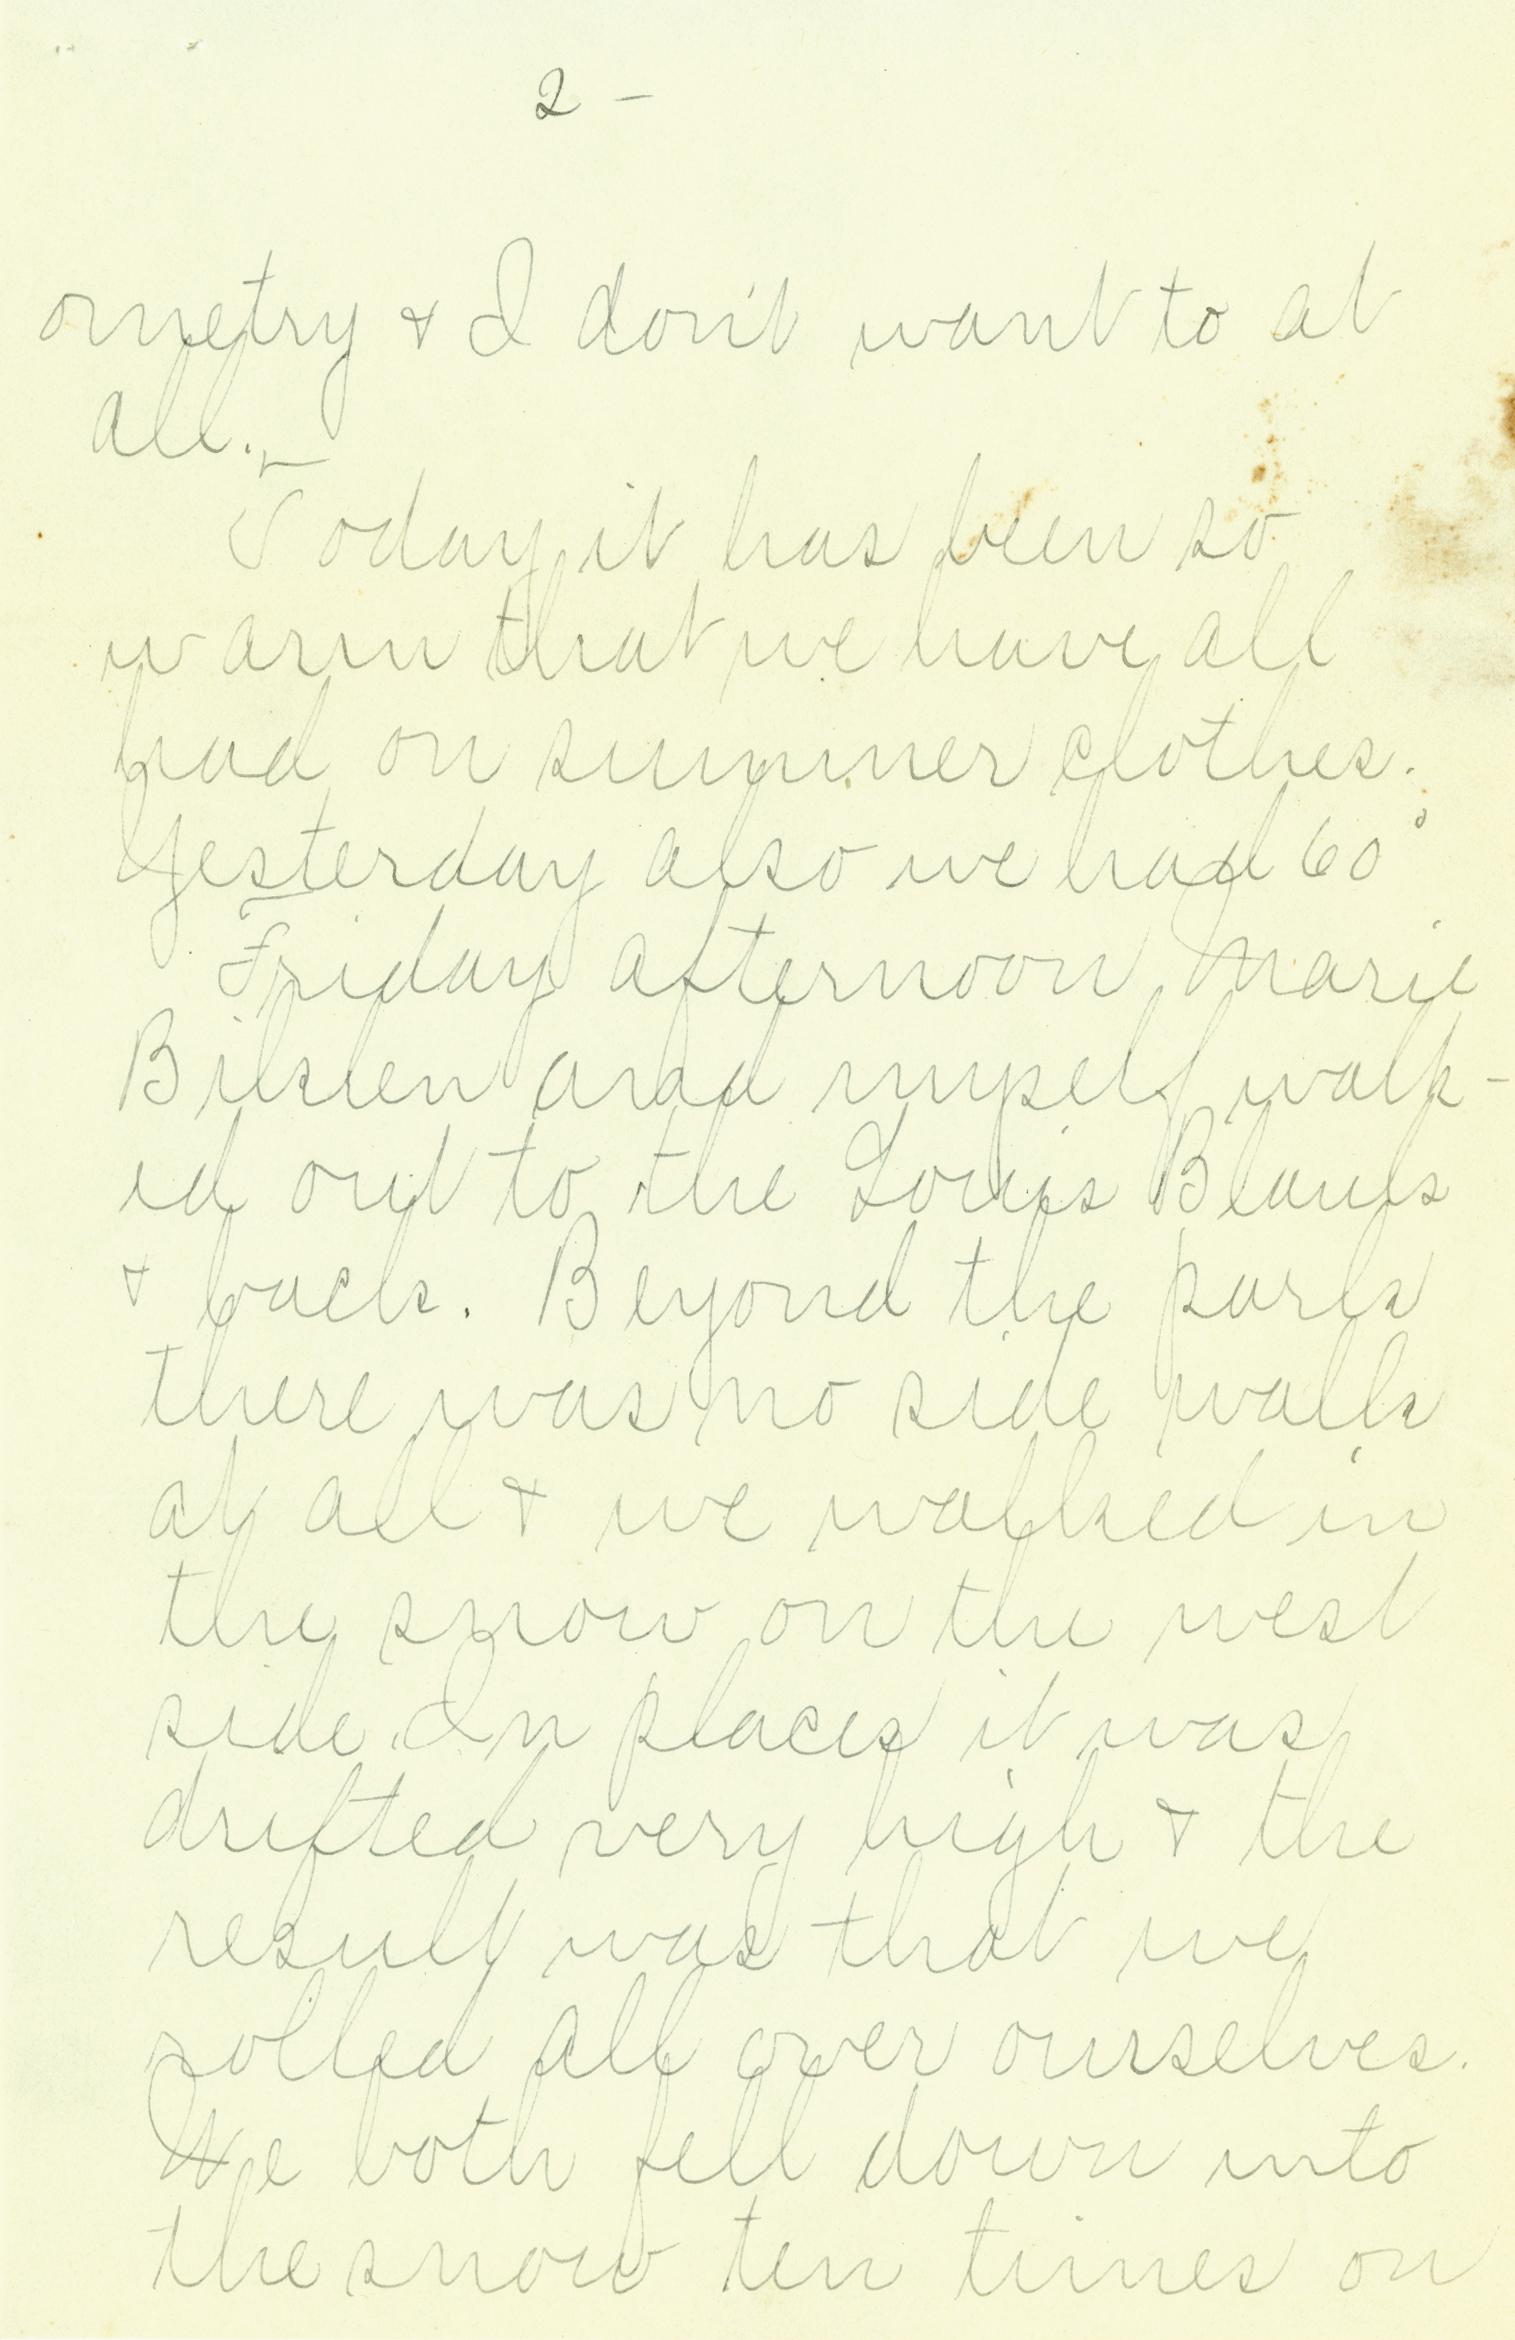 2 -
ometry & I don't want to at
all.
Today it has been so
warm that we have all
had on summer clothes.
Yesterday also we had 60°
Friday afternoon Marie
and myself walk-
ed out to the Louis
& back. Beyond the park
there was no side walk
at all & we walked in
the snow on the west
side. In places it was
drifted very high & the
result was that we
rolled all over ourselves.
We both fell down into
the snow ten times on